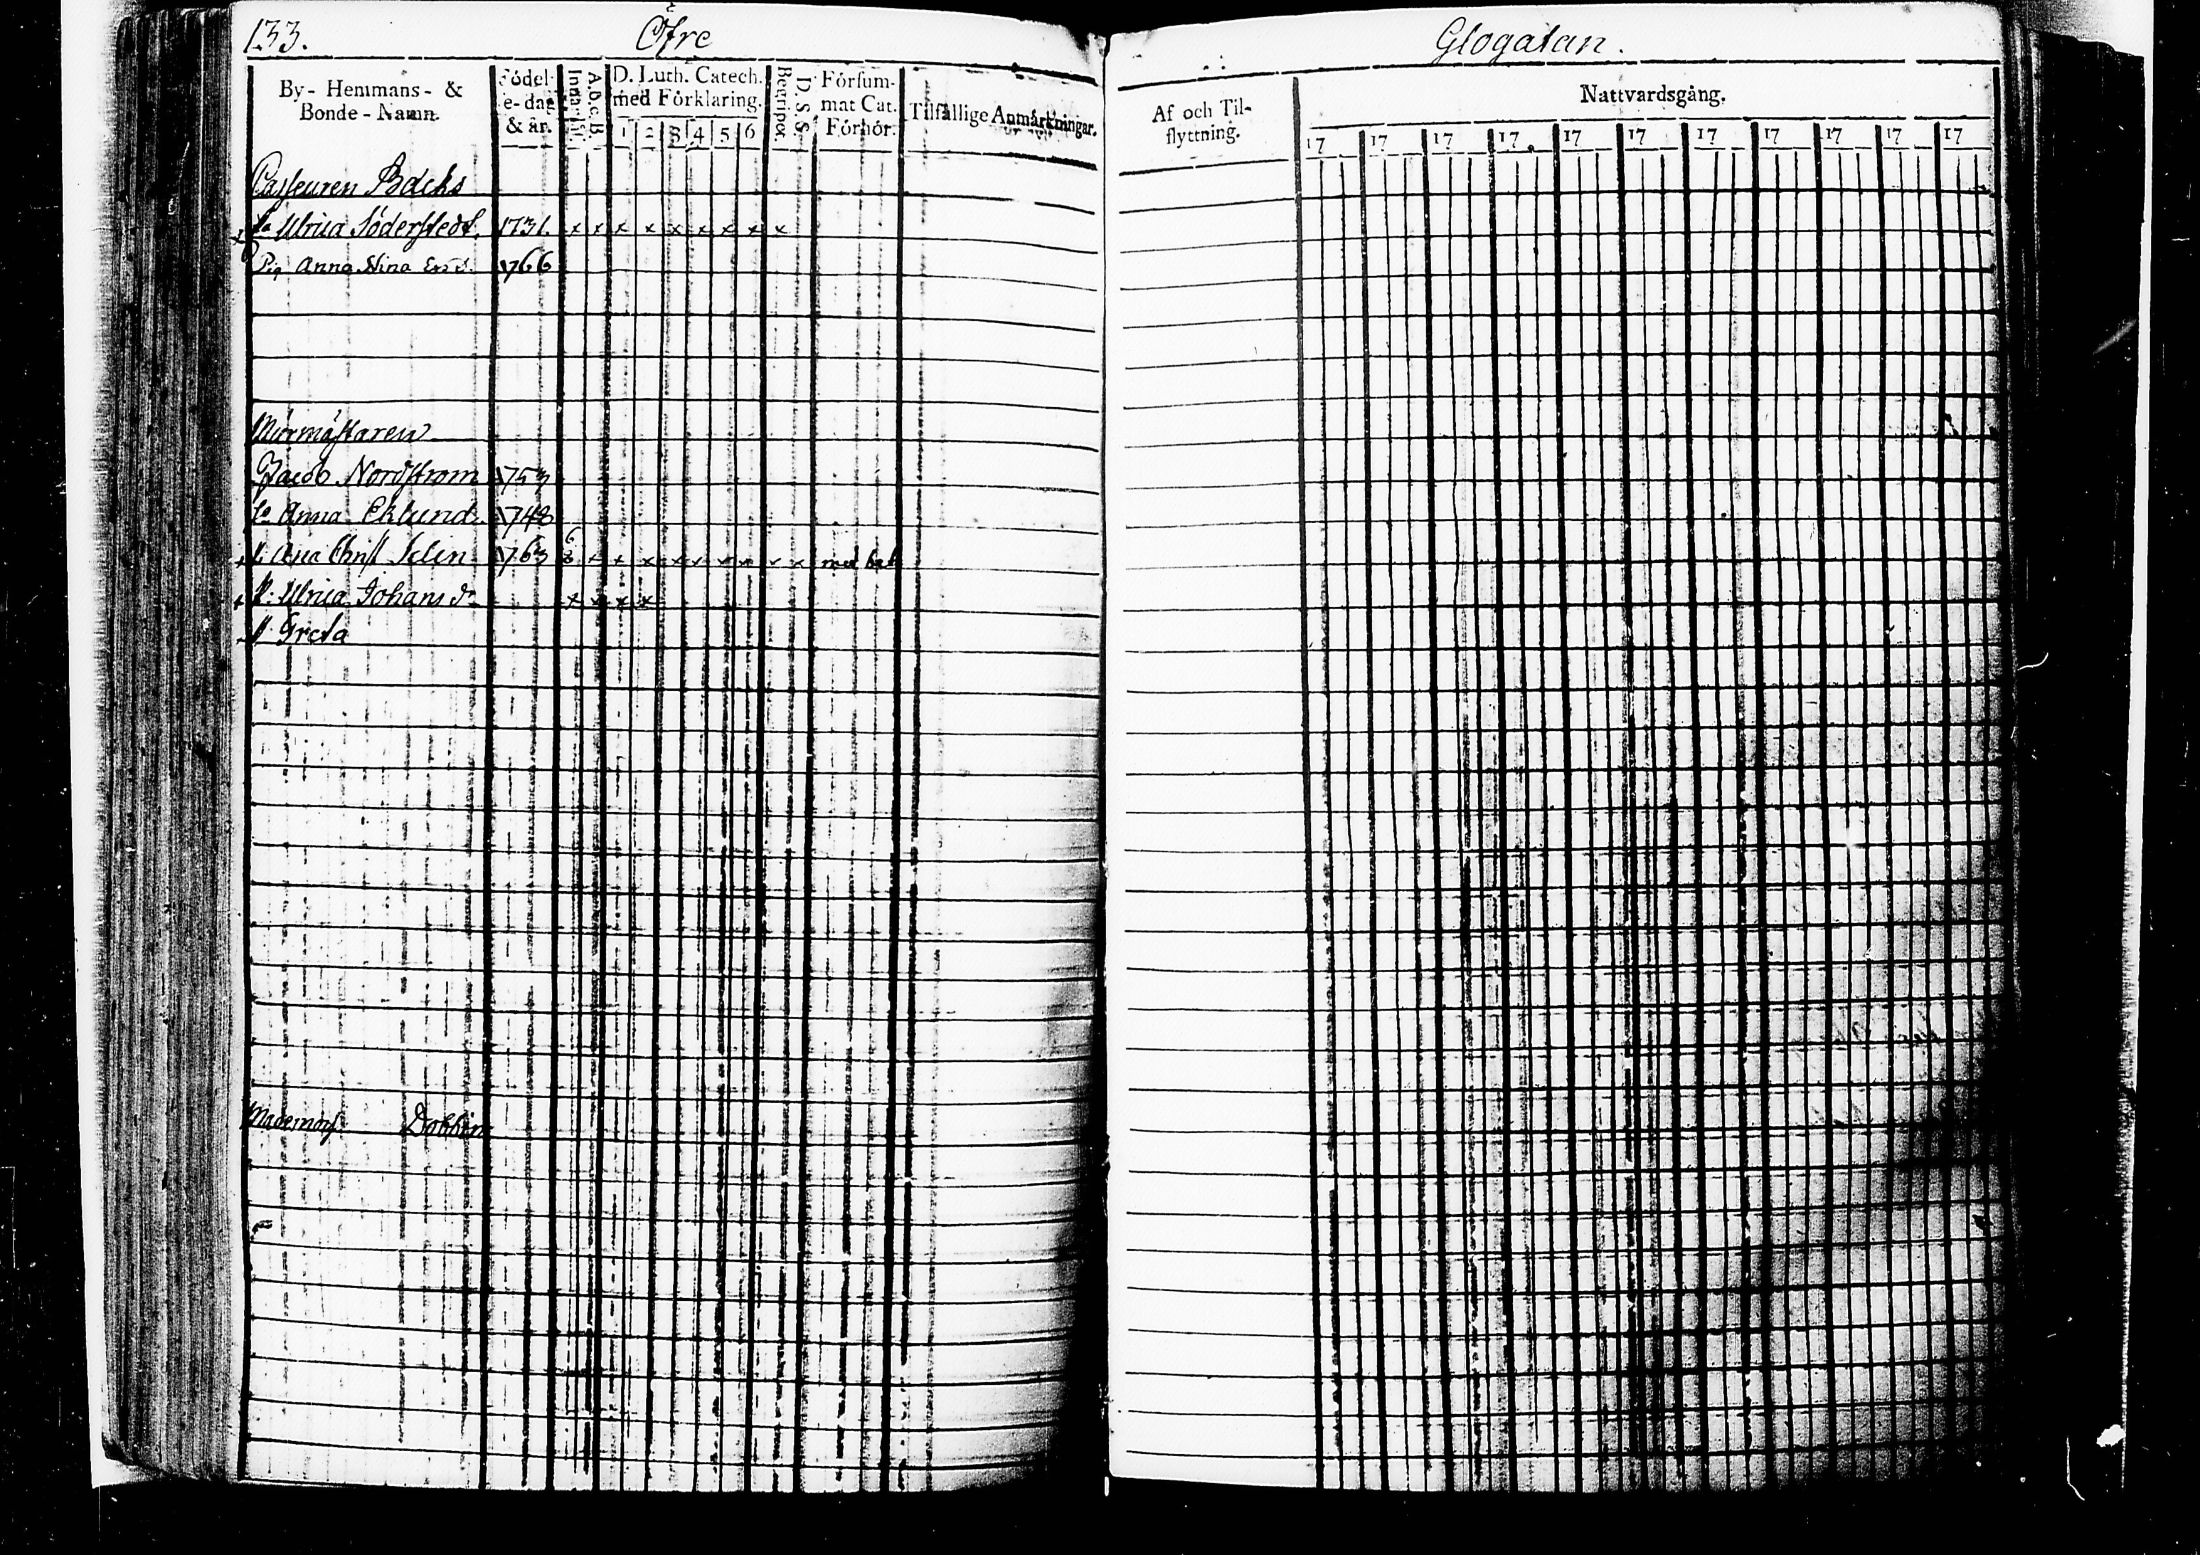 133. Öfre
By - Hemmans - &
Bonde - Namn.
Födel-
e-dag
& år.
A.b.c.B.
D. Luth. Catech.
med Förklaring.
1 2 3 4 5 6
Begriper.
D. S. S.
Försum-
mat Cat.
Förhör.
Tilfällige Anmärkningar.
Casseuren Bäcks
Ulrica Söderstedt. 1731. x x x x x x x x x
Pig Anna Nina 1766
Murmästaren
Jacob Nordström 1753
Anna Eklund. 1748
Selin 1763
Ulrica Johans dr x x x x
Greta
Mademois. Dobbin
Glogatan.
Af och Til-
flyttning.
Nattvardsgång.
17 17 17 17 17 17 17 17 17 17 17